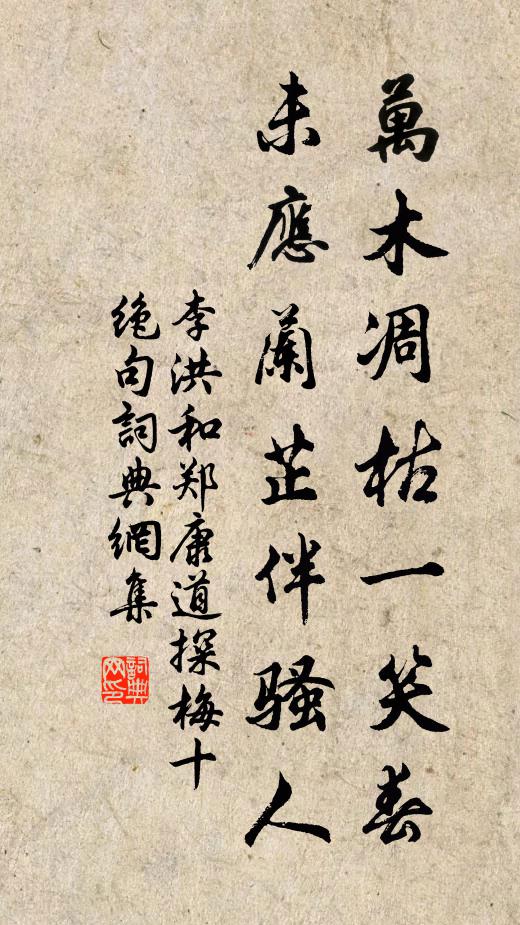 萬木凋枯一笑春
未應蘭芷伴骚人
李洪和郑康道探梅十
绝句詞典網集
詞典
网印